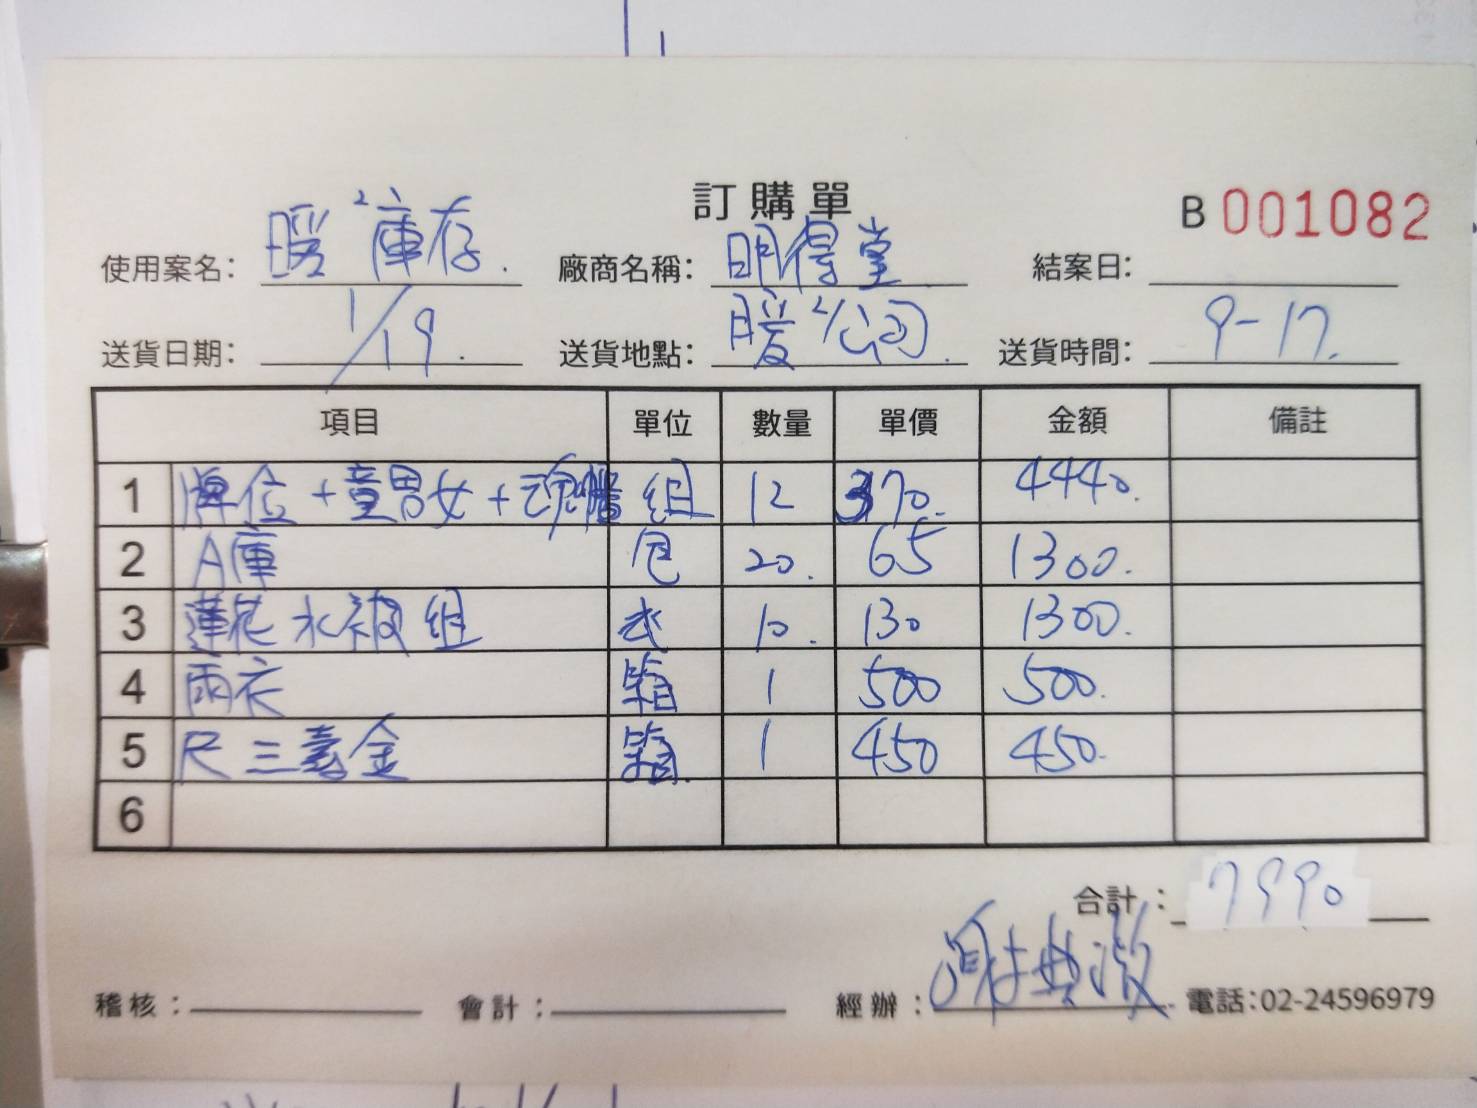 訂購單
B 001082
使用案名： 暖²庫存. 廠商名稱： 明得堂 結案日：
送貨日期： 1/19. 送貨地點： 暖²公司. 送貨時間： 9-17.
項目 單位 數量 單價 金額 備註
1 牌位+童男女+魂幡 組 12 370. 4440.
2 A庫 包 20. 65 1300.
3 蓮花水被組 10. 130 1300.
4 雨衣 箱 1 500 500.
5 尺三壽金 箱. 1 450 450.
6
合計： 7990
稽核： 會計： 經辦： 謝 電話：02-24596979